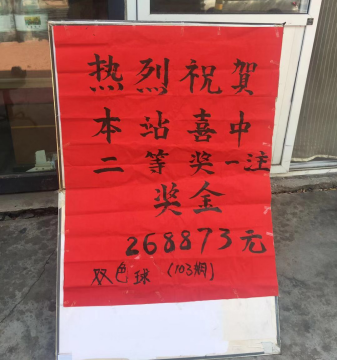 热烈祝贺
本站喜中
二等奖一注
奖金
268873元
双色球(103期)